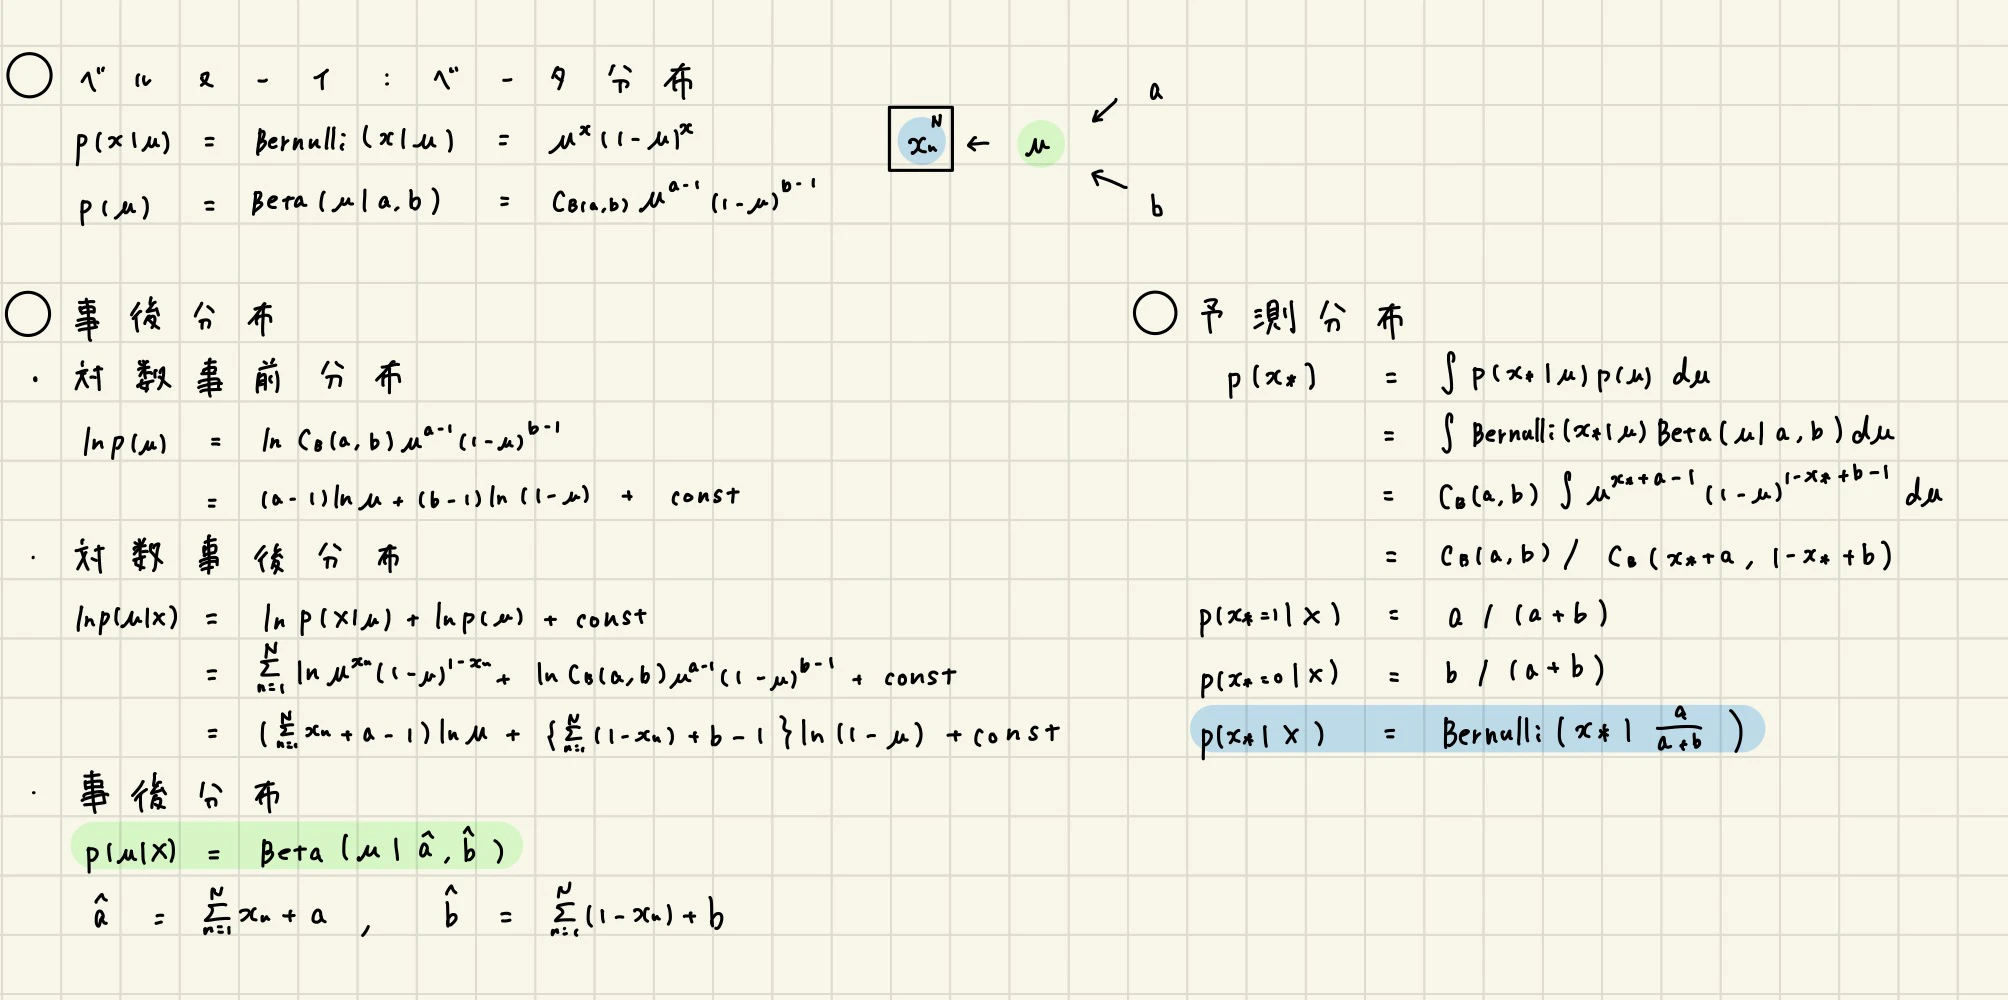 ベルヌーイ:ベータ分布
p(x|μ) = Bernulli(x|μ) = μ^x (1-μ)^x
p(μ) = Beta(μ|a,b) = C_B(a,b) μ^{a-1} (1-μ)^{b-1}
x_n N ← μ ↙ a ↖ b
事後分布
・対数事前分布
ln p(μ) = ln C_B(a,b) μ^{a-1} (1-μ)^{b-1}
= (a-1) ln μ + (b-1) ln (1-μ) + const
・対数事後分布
ln p(μ|X) = ln p(X|μ) + ln p(μ) + const
= Σ_{n=1}^N ln μ^{x_n} (1-μ)^{1-x_n} + ln C_B(a,b) μ^{a-1} (1-μ)^{b-1} + const
= (Σ_{n=1}^N x_n + a - 1) ln μ + {Σ_{n=1}^N (1-x_n) + b - 1} ln (1-μ) + const
・事後分布
p(μ|X) = Beta(μ|â, b̂)
â = Σ_{n=1}^N x_n + a , b̂ = Σ_{n=1}^N (1-x_n) + b
予測分布
p(x_*) = ∫ p(x_*|μ) p(μ) dμ
= ∫ Bernulli(x_*|μ) Beta(μ|a,b) dμ
= C_B(a,b) ∫ μ^{x_*+a-1} (1-μ)^{1-x_*+b-1} dμ
= C_B(a,b) / C_B(x_*+a, 1-x_*+b)
p(x_*=1|X) = a / (a+b)
p(x_*=0|X) = b / (a+b)
p(x_*|X) = Bernulli(x_*| a/(a+b))